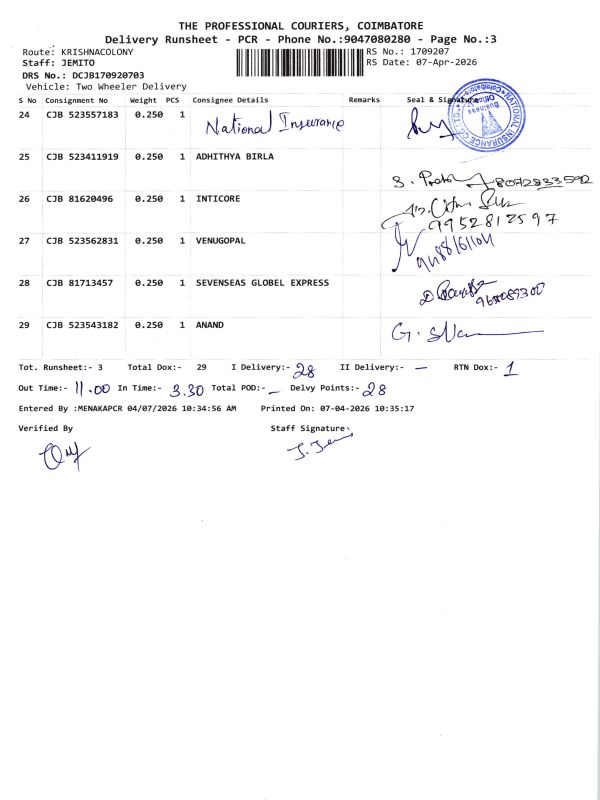 THE PROFESSIONAL COURIERS, COIMBATORE
Delivery Runsheet - PCR - Phone No.:9047080280 - Page No.:3
Route: KRISHNACOLONY RS No.: 1709207
Staff: JEMITO RS Date: 07-Apr-2026
DRS No.: DCJB170920703
Vehicle: Two Wheeler Delivery
S No Consignment No Weight PCS Consignee Details Remarks Seal & Signature
24 CJB 523557183 0.250 1 National Insurance
NATIONAL INSURANCE CO. LTD.
Business Office
Coimbatore
25 CJB 523411919 0.250 1 ADHITHYA BIRLA
8072833592
26 CJB 81620496 0.250 1 INTICORE
9952812597
27 CJB 523562831 0.250 1 VENUGOPAL
28 CJB 81713457 0.250 1 SEVENSEAS GLOBEL EXPRESS
29 CJB 523543182 0.250 1 ANAND
Tot. Runsheet:- 3 Total Dox:- 29 I Delivery:- 28 II Delivery:- — RTN Dox:- 1
Out Time:- 11.00 In Time:- 3.30 Total POD:- — Delvy Points:- 28
Entered By :MENAKAPCR 04/07/2026 10:34:56 AM Printed On: 07-04-2026 10:35:17
Verified By Staff Signature